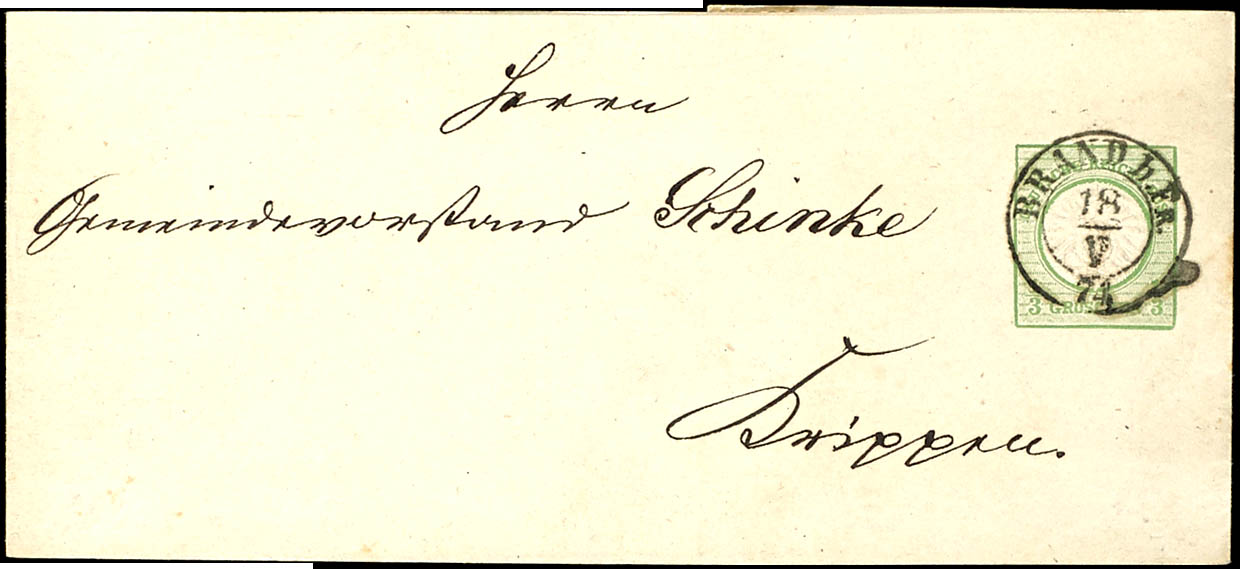 Herrn
Gemeindevorstand Schinke
BRAND b. FR.
18
V
74
3 GROSCHEN 3
Krippen.